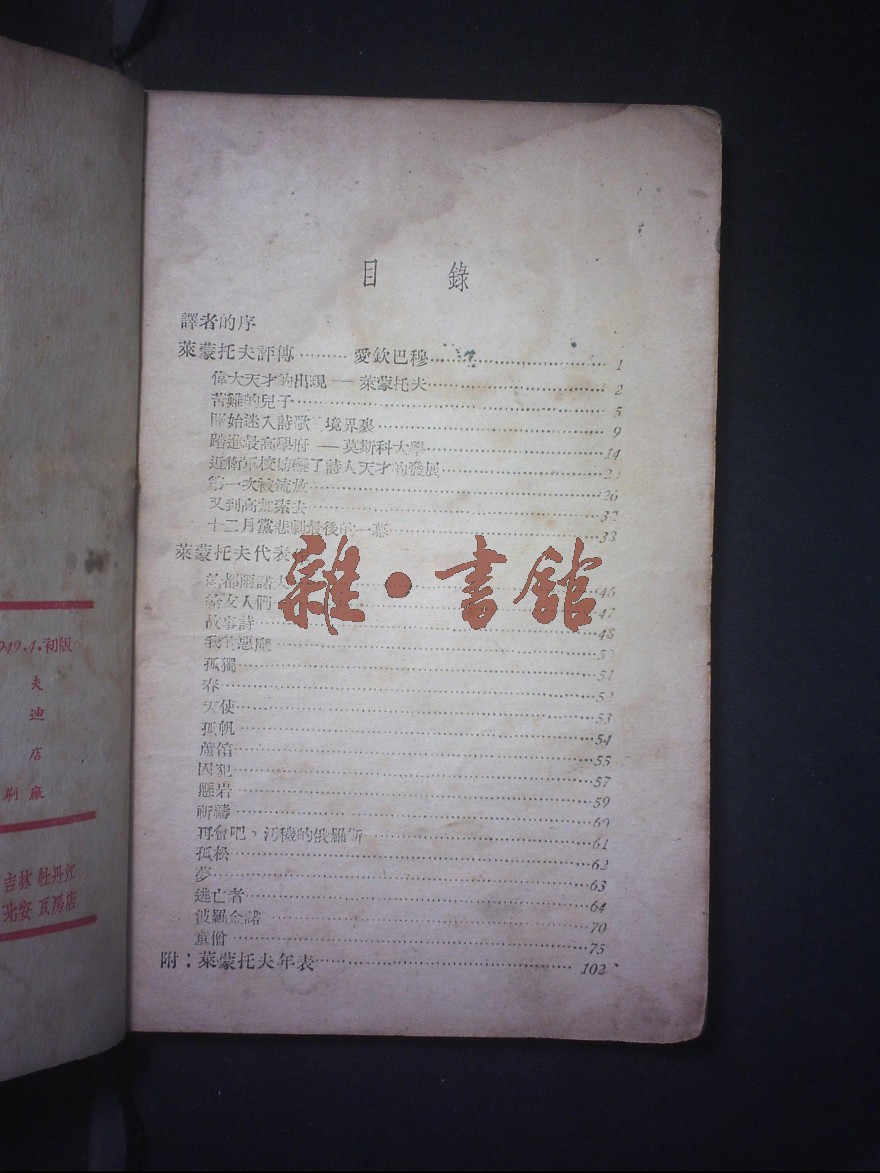 目 錄
譯者的序
萊蒙托夫評傳 ········· 愛欽巴穆 ········· 1
偉大天才的出現 —— 萊蒙托夫 ········· 2
苦難的兒子 ········· 5
開始迷入詩歌 境界裏 ········· 9
踏進最高學府 —— 莫斯科大學 ········· 14
近衛軍校妨礙了詩人天才的發展 ·········
第一次被流放 ········· 26
又到高加索去 ········· 32
十二月黨悲劇最後的一幕 ········· 33
萊蒙托夫代表
········· 46
給友人們 ········· 47
故事詩 ········· 48
我的惡魔 ·········
孤獨 ········· 51
春 ········· 52
天使 ········· 53
孤帆 ········· 54
蘆笛 ········· 55
囚犯 ········· 57
懸岩 ········· 59
祈禱 ········· 60
再會吧，污穢的俄羅斯 ········· 61
孤松 ········· 62
夢 ········· 63
逃亡者 ········· 64
波羅金諾 ········· 70
童僧 ········· 75
附：萊蒙托夫年表 ········· 102
雜·書館
949.4.初版
夫
迪
店
刷廠
吉林 牡丹江
北安 瓦房店